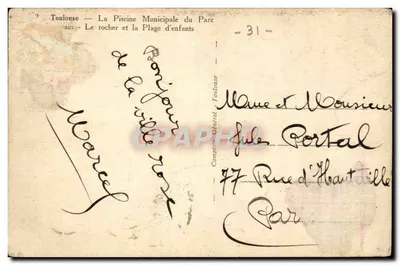 Toulouse — La Piscine Municipale du Parc
- Le rocher et la Plage d'enfants
- 31 -
Bonjour
de la ville rose
Marcel
Toulouse
Mme et Monsieur
Jules Portal
77 Rue d'Hauteville
Par